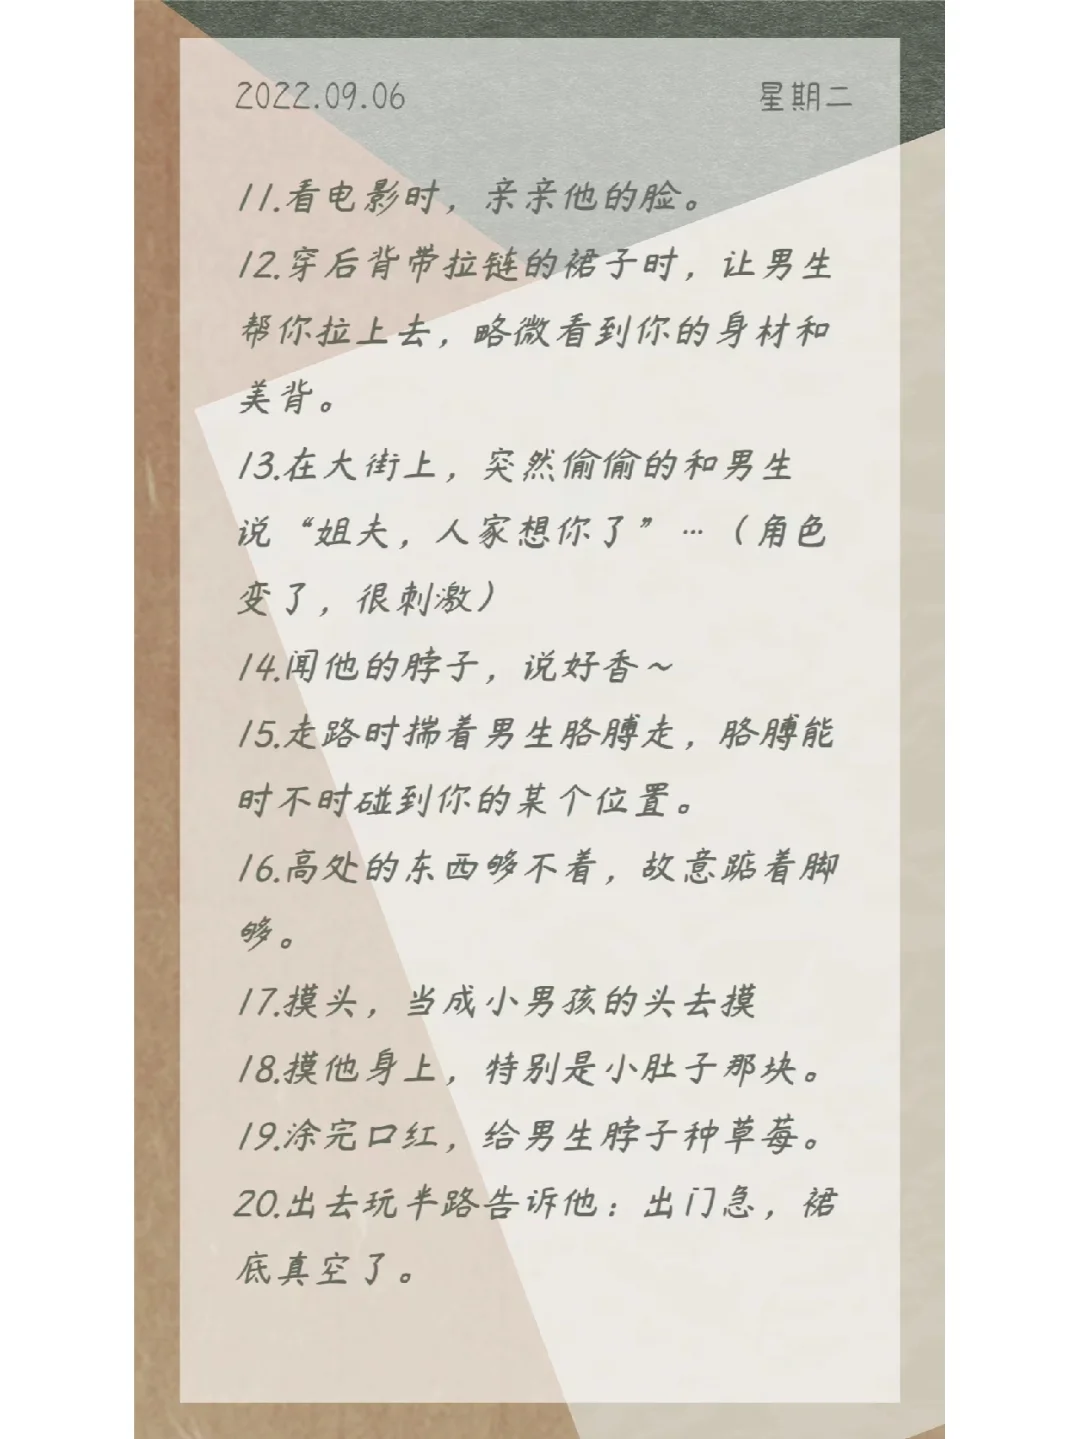 2022.09.06 星期二
11.看电影时，亲亲他的脸。
12.穿后背带拉链的裙子时，让男生
帮你拉上去，略微看到你的身材和
美背。
13.在大街上，突然偷偷的和男生
说“姐夫，人家想你了”…（角色
变了，很刺激）
14.闻他的脖子，说好香～
15.走路时揣着男生胳膊走，胳膊能
时不时碰到你的某个位置。
16.高处的东西够不着，故意踮着脚
够。
17.摸头，当成小男孩的头去摸
18.摸他身上，特别是小肚子那块。
19.涂完口红，给男生脖子种草莓。
20.出去玩半路告诉他：出门急，裙
底真空了。